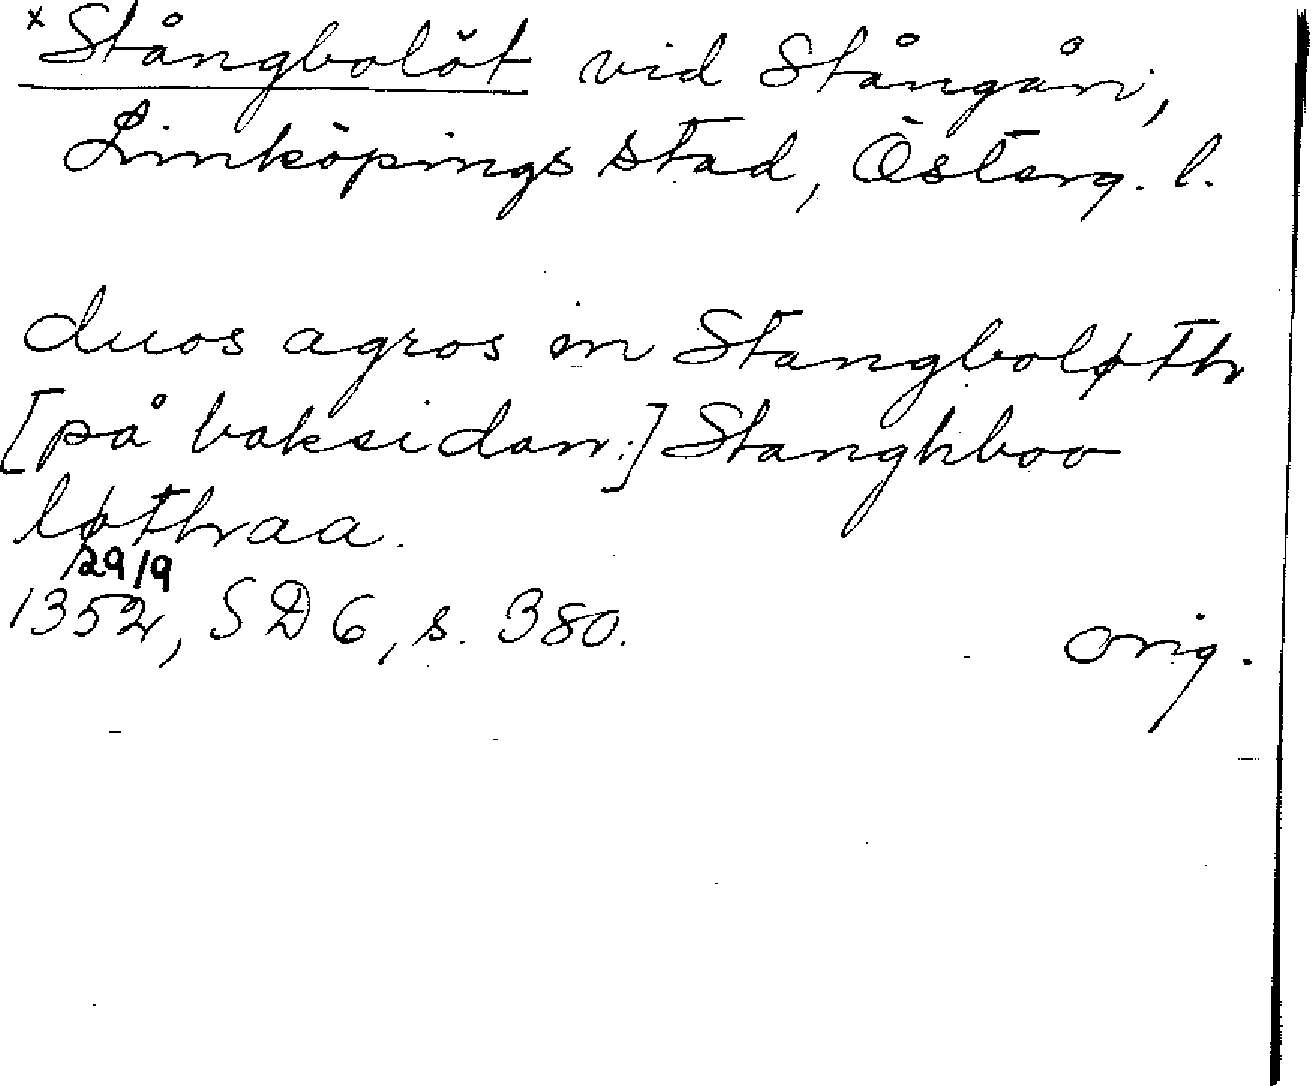 x Stångbolöt vid Stångån,
Linköpings stad, Österg. l.
duos agros in Stangboløthr
[på baksidan:] Stanghboo
løthraa.
29/9
1352, SD 6, s. 380.
orig.